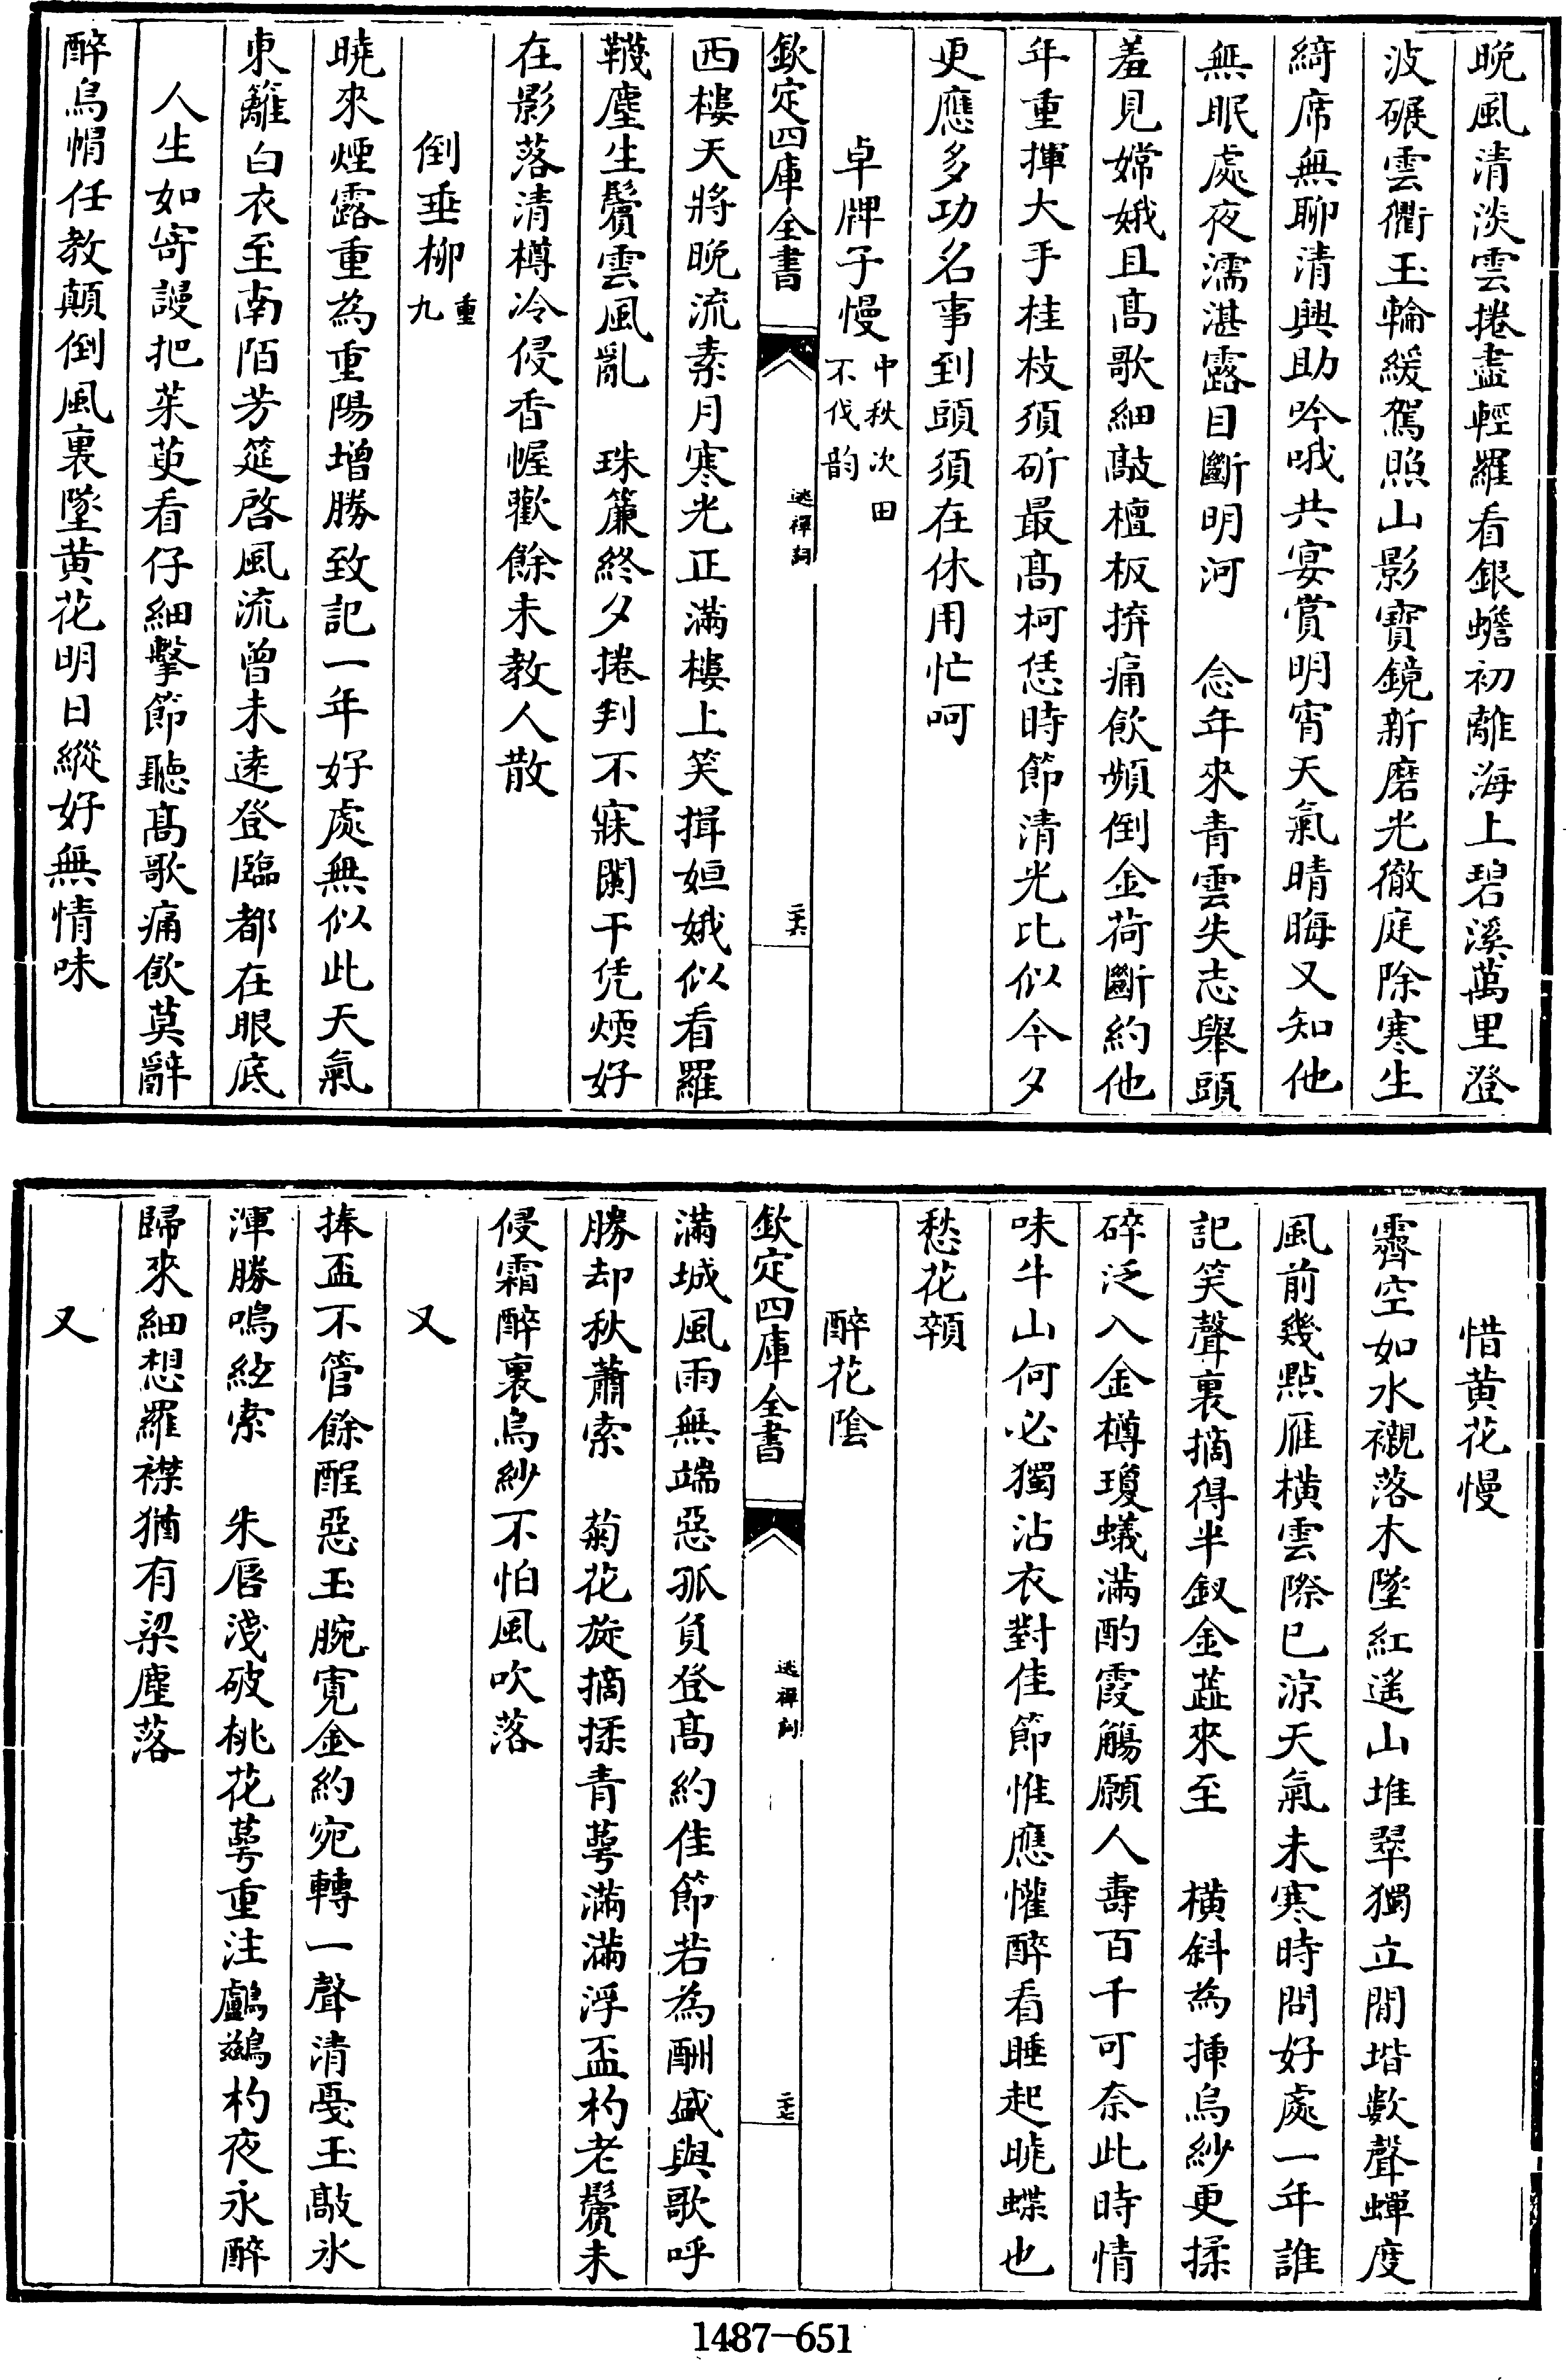 晚風清淡雲捲盡輕羅看銀蟾初離海上碧溪萬里澄
波碾雲衢玉輪緩駕照山影寳鏡新磨光徹庭除寒生
綺席無聊清興助吟哦共宴賞明宵天氣晴晦又知他
無眠處夜濡湛露目斷明河　念年來青雲失志舉頭
羞見嫦娥且髙歌細敲檀板拚痛飲頻倒金荷斷約他
年重揮大手桂枝須斫最髙柯恁時節清光比似今夕
更應多功名事到頭須在休用忙呵
卓牌子慢中秋次田不伐韵
欽定四庫全書
逃禪詞
二十六
西樓天將晚流素月寒光正滿樓上笑揖姮娥似看羅
韈塵生鬢雲風亂　珠簾終夕捲判不寐闌干凭煗好
在影落清樽冷侵香幄歡餘未教人散
倒垂柳重九
曉來煙露重為重陽增勝致記一年好處無似此天氣
東籬白衣至南陌芳筵啓風流曾未逺登臨都在眼底
人生如寄謾把茱萸看仔細擊節聽髙歌痛飲莫辭
醉烏帽任教顛倒風裏墜黄花明日縱好無情味
惜黄花慢
霽空如水襯落木墜紅遥山堆翠獨立閒堦數聲蟬度
風前幾點雁横雲際已涼天氣未寒時問好處一年誰
記笑聲裏摘得半釵金蘂來至　横斜為挿烏紗更揉
碎泛入金樽瓊蟻滿酌霞觴願人壽百千可奈此時情
味牛山何必獨沾衣對佳節惟應懽醉看睡起曉蝶也
愁花顇
醉花隂
欽定四庫全書
逃禪詞
二十七
滿城風雨無端惡孤負登髙約佳節若為酬盛與歌呼
勝却秋蕭索　菊花旋摘揉青萼滿滿浮盃杓老鬢未
侵霜醉裏烏紗不怕風吹落
又
捧盃不管餘酲惡玉腕寛金約宛轉一聲清戞玉敲氷
渾勝嗚絃索　朱唇淺破桃花萼重注鸕鷀杓夜永醉
歸來細想羅襟猶有梁塵落
又
1487—651